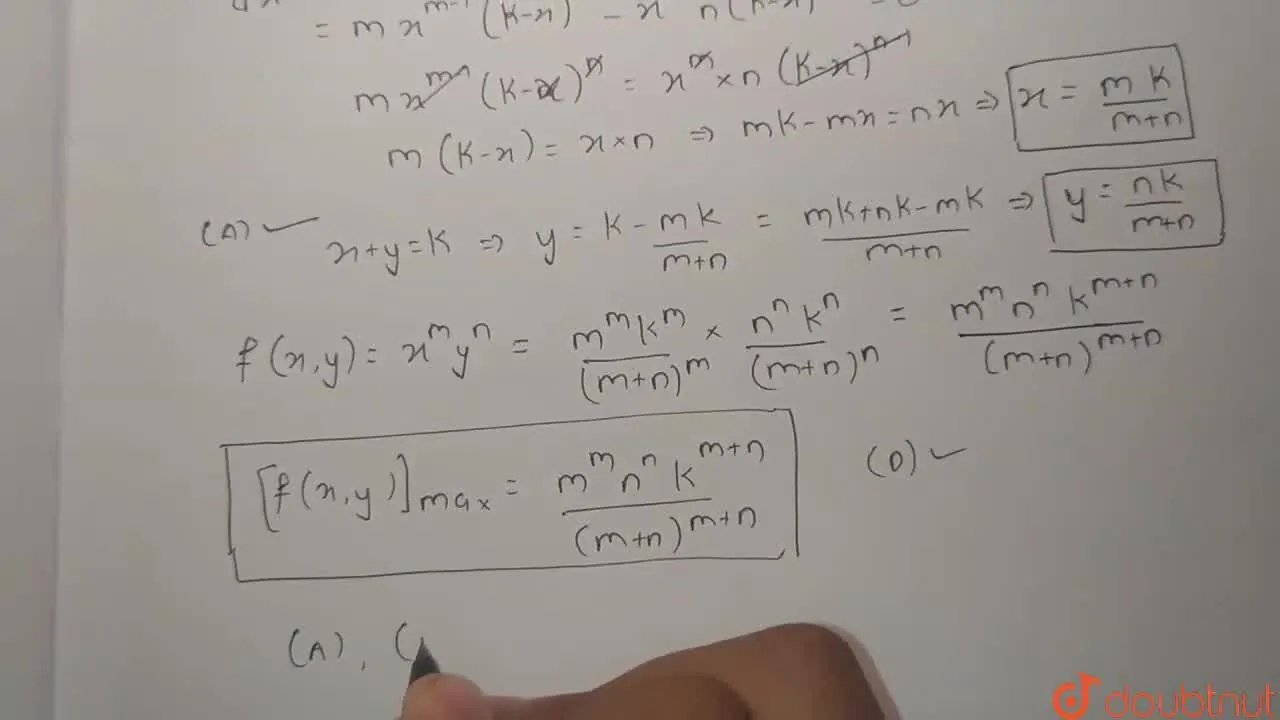 = m x^{m-1} (k-x) - x n (k-x)
m x^m (k-x)^n = x^m × n (k-x)^{n-1}
m (k-x) = x × n ⇒ mk - mx = nx ⇒ x = \frac{mk}{m+n}
(A) ✓ x + y = k ⇒ y = k - \frac{mk}{m+n} = \frac{mk+nk-mk}{m+n} ⇒ y = \frac{nk}{m+n}
f(x,y) = x^m y^n = \frac{m^m k^m}{(m+n)^m} × \frac{n^n k^n}{(m+n)^n} = \frac{m^m n^n k^{m+n}}{(m+n)^{m+n}}
[f(x,y)]_{max} = \frac{m^m n^n k^{m+n}}{(m+n)^{m+n}} (D) ✓
(A), (
doubtnut